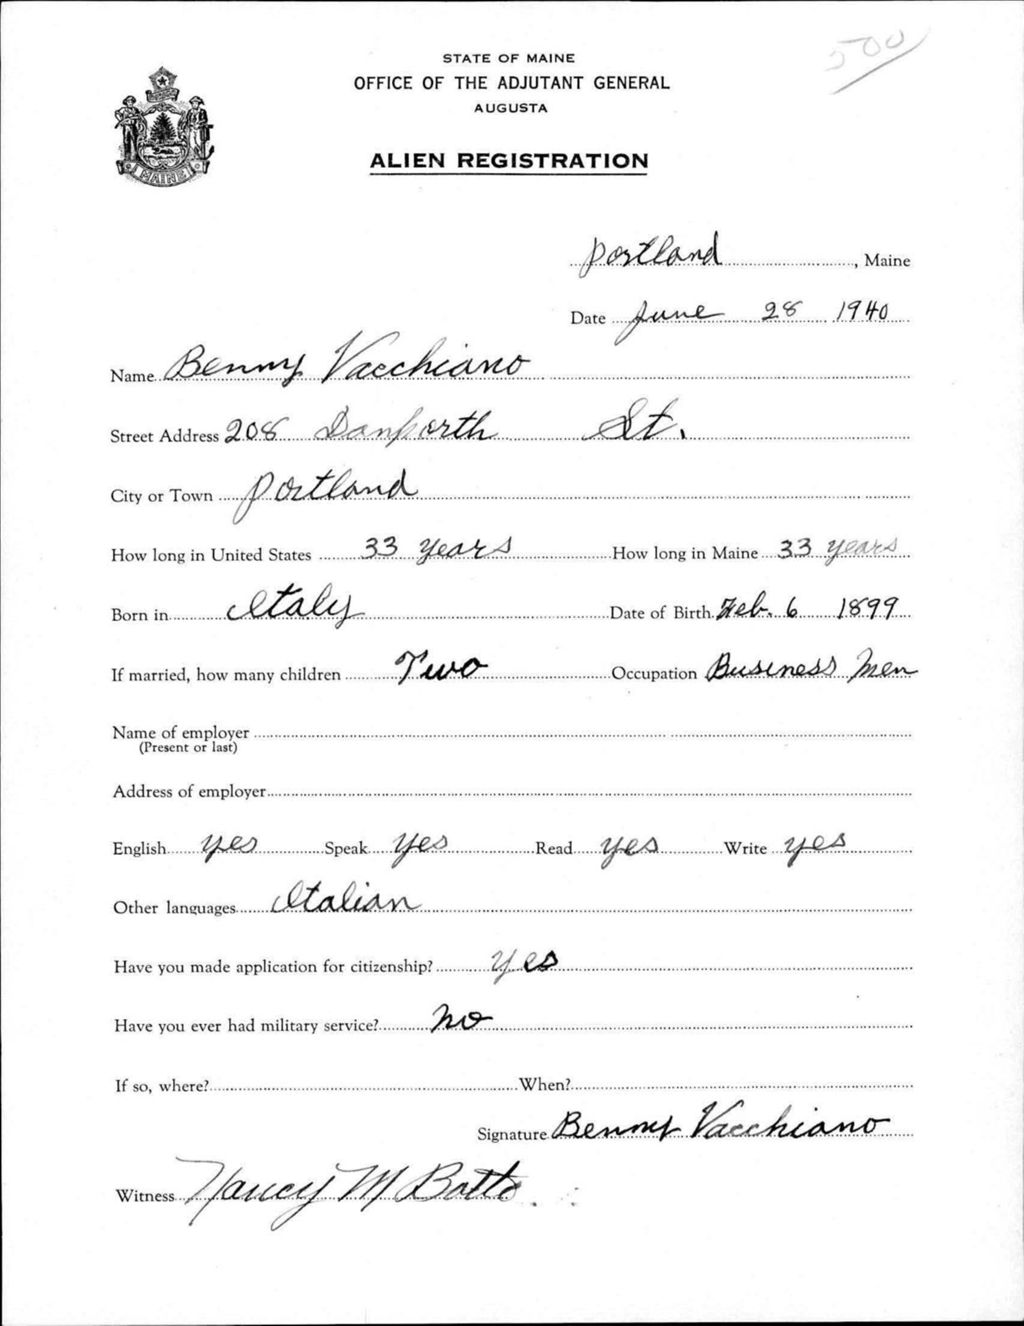 500
STATE OF MAINE
OFFICE OF THE ADJUTANT GENERAL
AUGUSTA
MAINE
ALIEN REGISTRATION
Portland, Maine
Date June 28 1940
Name Benny Vacchiano
Street Address 208 Danforth St.
City or Town Portland
How long in United States 33 years How long in Maine 33 years
Born in Italy Date of Birth Feb. 6 1899
If married, how many children Two Occupation Business Men
Name of employer
(Present or last)
Address of employer
English yes Speak yes Read yes Write yes
Other languages Italian
Have you made application for citizenship? Yes
Have you ever had military service? no
If so, where? When?
Signature Benny Vacchiano
Witness Nancy M Botto